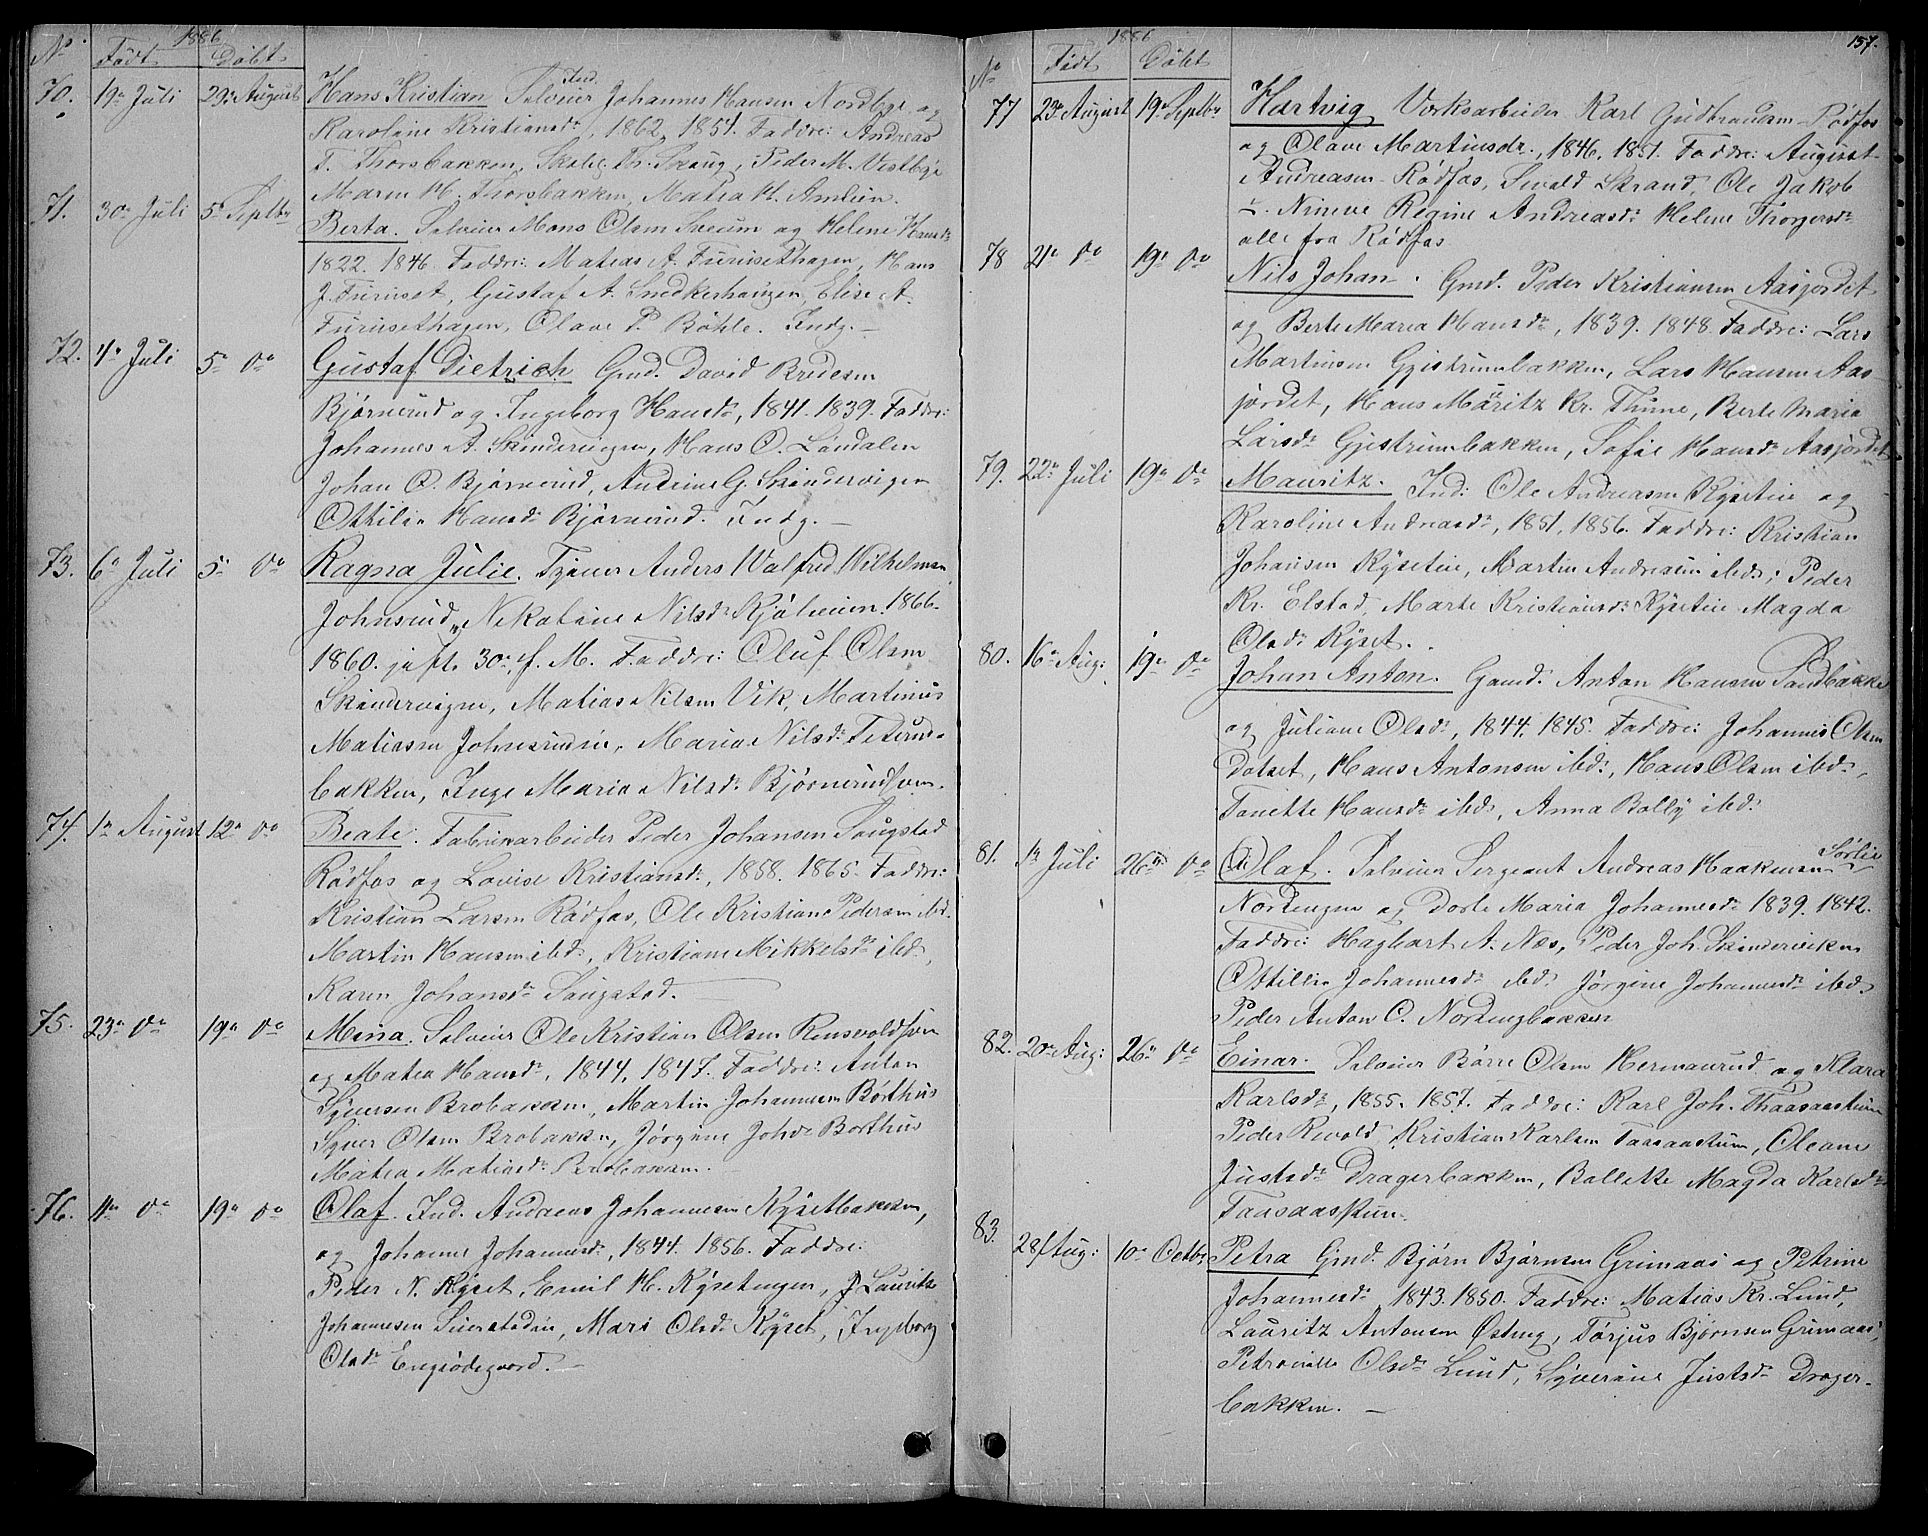 1886
No Födt Döbt
70. 19de Juli 29de August Hans Kristian Selveier Ind. Johannes Hansen Nordbye og
Karoline Kristiansdr, 1862, 1851. Faddre: Andreas
T. Thorsbakken, Th. Skaug, Peder M. Vestbye
Maren H. Thorsbakken, Matea H. Amlien.
71. 30te Juli 5te Septbr Berta. Selveier Mons Olsen Sveum og Helene Hansdr
1822. 1846. Faddre: Matias A. Furusethagen, Hans
J. Furuset, Gustaf A. Snedkerhaugen, Elise A.
Furusethagen, Olave P. Böhle. Indg. —
72. 4de Juli 5te Do Gustaf Dietrich Gmd. David Bredesen
Bjørnerud og Ingeborg Hansdr, 1841. 1839. Faddre:
Johannes A. Skindervigen, Hans O. Løndalen
Johan O. Bjørnerud, Andrine G. Skindervigen
Ottilie Hansdr Bjørnerud. Indg. —
73. 6te Juli 5te Do Ragna Julie. Tjener Anders Walfred Wilhelmsen
Johnsrud, Nikoline Nilsdr Kjølveien 1866.
1860. 30te f. M. Faddre: Oluf Olsen
Skindervigen, Matias Nilsen Vik, Martinus
Matiasen Johnsrudeie, Maria Nilsdr Teterud-
bakken, Inge Maria Nilsdr Bjørnerudsveen.
74. 1ste August 12te Do Beate. Fabrikarbeider Peder Johansen Saugstad
Rödfos og Lovise Kristiansdr, 1858. 1865. Faddre:
Kristian Larsen Rödfos, Ole Kristian Pedersen ibd.
Martin Hansen ibd., Kristiane Mikkelsdr ibd.,
Karen Johansdr Saugstad. —
75. 23de Do 19de Do Mina. Selveier Ole Kristian Olsen Rensvoldsveen
og Matea Hansdr, 1844, 1847. Faddre: Anton
Syversen Brobakken, Martin Johannesen Børthus
Syver Olsen Brobakken, Jørgine Johdr Borthus
Matea Matiasdr Brobakken.
76. 11te Do 19de Do Olaf. Ind. Andreas Johannesen Kysetbakken,
og Johanne Johannesdr, 1844. 1856. Faddre:
Peder N. Kyset, Emil H. Kysetengen, J. Lauritz
Johannesen, Mari Olsdr Kyset, Ingeborg
Olsdr Engeødegaard. —
1886
157.
No Födt Döbt
77 23de August 19de Septbr Hartvig Verksarbeider Karl Gudbrandsen Rödfos
og Olave Martinsdr, 1846, 1851. Faddre: August
Andreasen Rödfos, Sevald Strand, Ole Jakob
Nineve Regine Andreasdr Helene Thorgersdr
alle fra Rödfos
78 21de Do 19de Do Nils Johan. Gmd. Peder Kristiansen Aasjordet
og Berte Maria Hansdr, 1839. 1848. Faddre: Lars
Martinsen Gjestrumbakken, Lars Hansen Aas-
jordet, Hans Mauritz Kr. Thune, Berte Maria
Larsdr Gjestrumbakken, Sofie Hansdr Aasjordet
79. 22de Juli 19de Do Mauritz. Ind: Ole Andreasen Kyseteie og
Karoline Andreasdr, 1851, 1856. Faddre: Kristian
Johansen Kyseteie, Martin Andreasen ibds, Peder
Kr. Elstad, Marte Kristiansdr Kyseteie Magda
Olsdr Kyset.
80. 16de Aug: 19de Do Johan Anton. Gaard. Anton Hansen Sandbakke
og Juliane Olsdr, 1844. 1845. Faddre: Johannes Olsen
Dotset, Hans Antonsen ibds, Hans Olsen ibds,
Tonette Hansdr ibds, Anna Bolly ibd.
81. 1ste Juli 26de Do Olaf. Selveier Sergeant Andreas Haakensen Sörlie
Nordengen og Dorte Maria Johannesdr 1839. 1842.
Faddre: Hagbart A. Næs, Peder Joh. Skinderviken
Ottillie Johannesdr ibd. Jörgine Johannesdr ibd.
Peder Anton O. Nordengbakken
82. 20de Aug: 26de Do Einar. Selveier Börre Olsen Hermanrud og Klara
Karlsdr, 1855. 1857. Faddre: Karl Joh. Thaasaastuen
Peder Revold, Kristian Karlsen Taasaastuen, Oleane
Justsdr Dragerbakken, Bollette Magda Karlsdr
Taasaastuen.
83. 28 Aug: 10de Octbr Petra Gmd. Bjørn Bjørnsen Grimaas og Petrine
Johannesdr 1843. 1850. Faddre: Matias Kr. Lund,
Lauritz Antonsen Østeng, Torjus Bjørnsen Grimaas,
Petronille Olsdr Lund, Syverine Justsdr Drager-
bakken. —